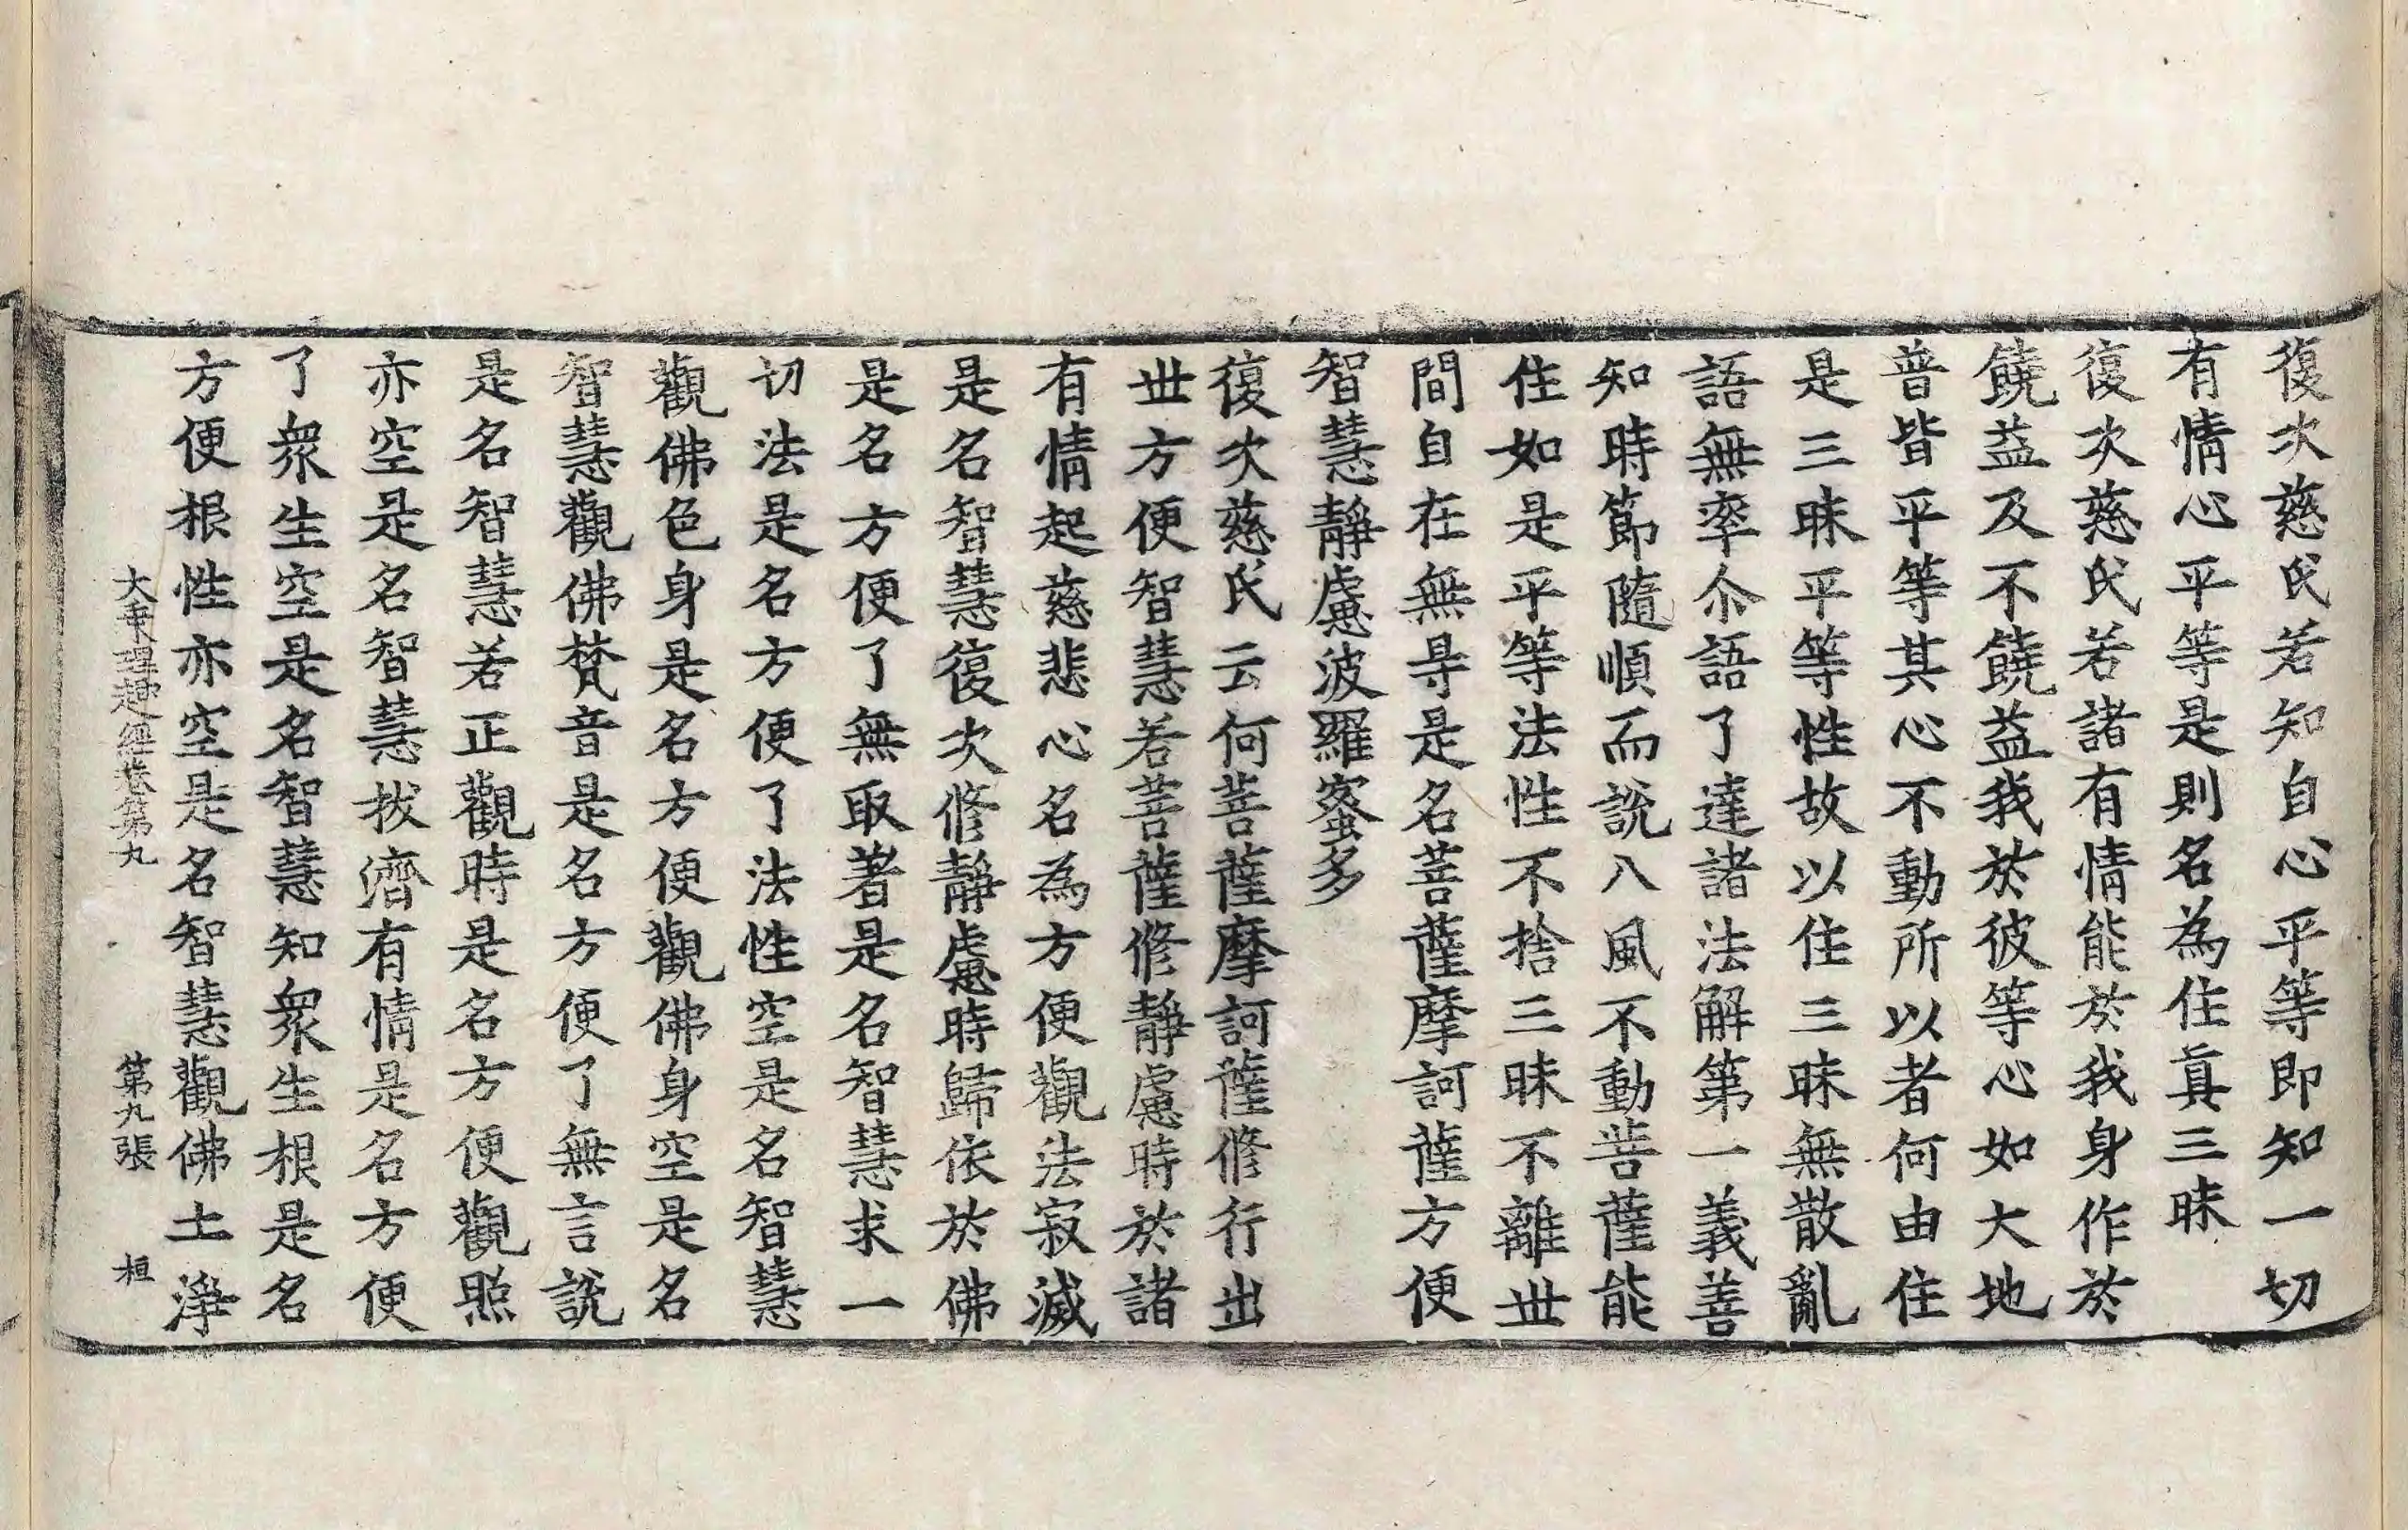 復次慈氏若知自心平等即知一切
有情心平等是則名為住真三昧
復次慈氏若諸有情能於我身作於
饒益及不饒益我於彼等心如大地
普皆平等其心不動所以者何由住
是三昧平等性故以住三昧無散亂
語無率尒語了達諸法解第一義善
知時節隨順而說八風不動菩薩能
住如是平等法性不捨三昧不離世
間自在無㝵是名菩薩摩訶薩方便
智慧靜慮波羅蜜多
復次慈氏云何菩薩摩訶薩修行出
世方便智慧若菩薩修靜慮時於諸
有情起慈悲心名為方便觀法寂滅
是名智慧復次修靜慮時歸依於佛
是名方便了無取著是名智慧求一
切法是名方便了法性空是名智慧
觀佛色身是名方便觀佛身空是名
智慧觀佛梵音是名方便了無言說
是名智慧若正觀時是名方便觀照
亦空是名智慧拔濟有情是名方便
了眾生空是名智慧知眾生根是名
方便根性亦空是名智慧觀佛土淨
大乘理趣經卷第九 第九張 桓